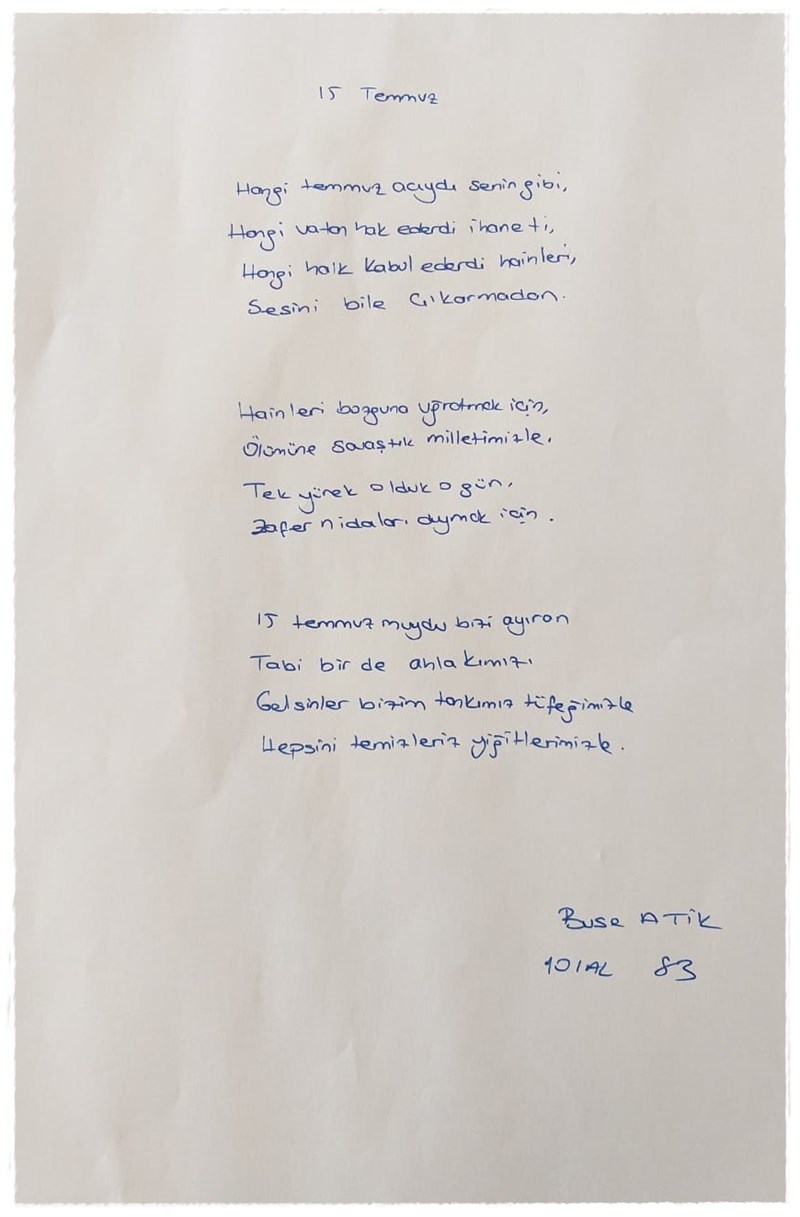 15 Temmuz
Hangi temmuz acıydı senin gibi,
Hangi vatan hak ederdi ihaneti,
Hangi halk kabul ederdi hainleri,
Sesini bile çıkarmadan.
Hainleri bozguna uğratmak için,
Ölümüne savaştık milletimizle.
Tek yürek olduk o gün,
Zafer nidaları duymak için.
15 temmuz muydu bizi ayıran
Tabi bir de ahlakımızı
Gelsinler bizim tankımız tüfeğimizle
Hepsini temizleriz yiğitlerimizle.
Buse ATİK
10/AL 83